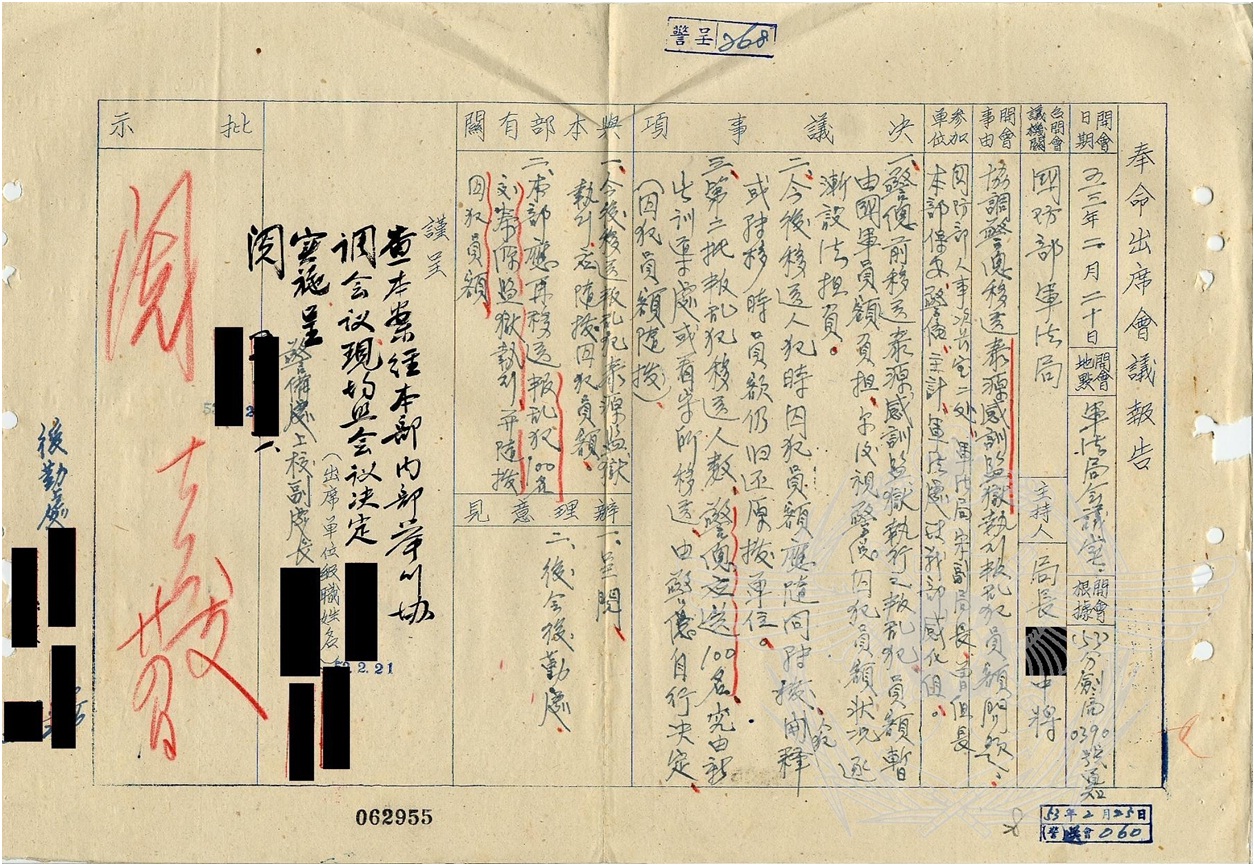 警呈 268
奉命出席會議報告
開會日期
五三年二月二十日
開會地點
軍法局會議室
開會根據
(53)
0390號
召開會議機關
國防部軍法局
主持人
局長
中將
開會事由
協調警總移送泰源感訓監獄執行叛乱犯員額問題
參加單位
國防部人事次長室二處、軍法局宋副局長、曹組長
本部保安、警備、主計、軍法處
決議事項
一、警總前移送泰源感訓監獄執行之叛乱犯員額暫
由國軍員額負担、尔後視警總囚犯員額狀況逐
漸設法担負。
二、今後移送人犯時囚犯員額應隨同時撥、開釋
或移時員額仍旧还原撥單位。
三、第二批叛乱犯移送人数、警總应送100名究由新
生訓導處或看守所移送、由警總自行決定、
(囚犯員額隨撥)
與本部有關
一、今後後送叛乱犯泰源監獄
執行、应隨撥囚犯員額、
二、本部應再移送叛乱犯100名
到泰源監獄執行并隨撥
囚犯員額
辦理意見
一、呈閱
二、後會後勤處、
謹呈
查本案經本部內部舉行協
調会议現均照会议決定
實施呈
閱
警備處上校副處長
(出席單位級職姓名)
2.21
批示
閱
後勤處
062955
53年2月25日
060